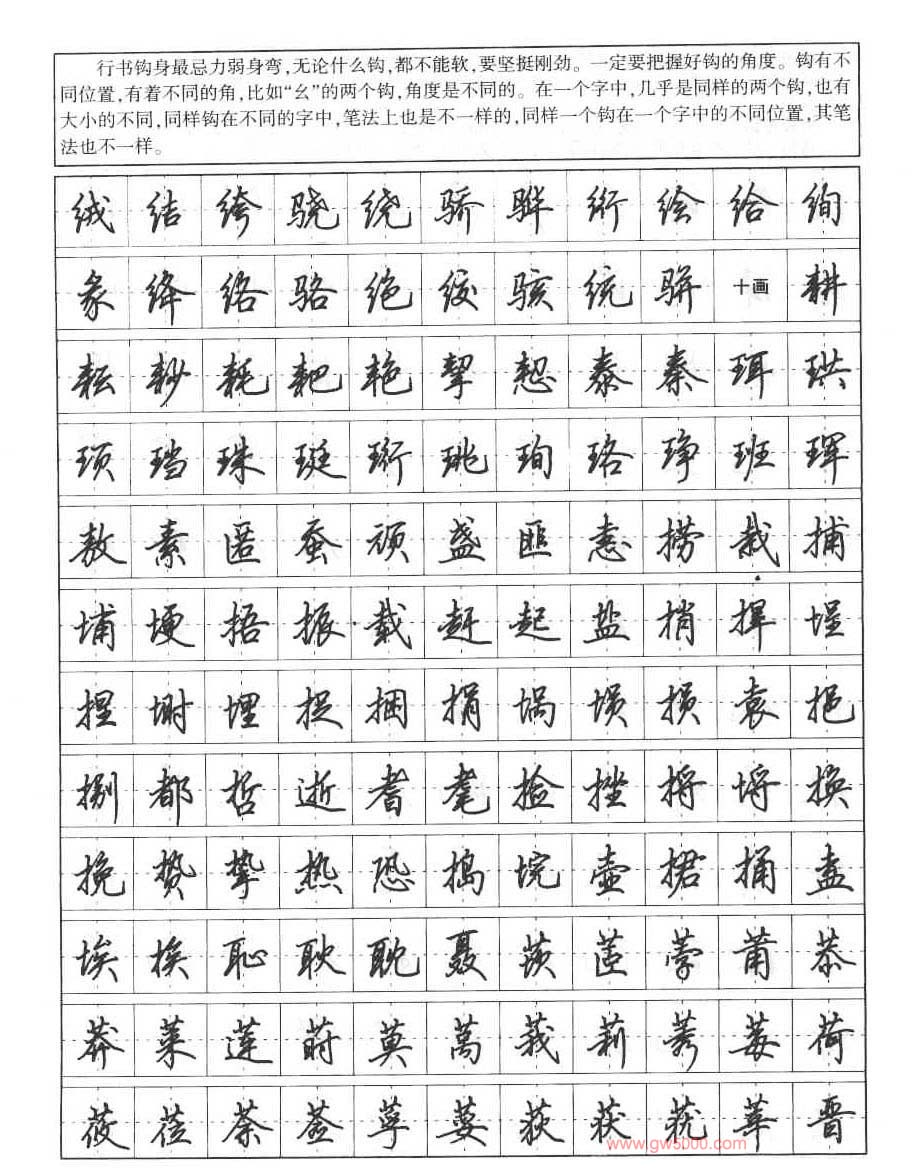 行书钩身最忌力弱身弯,无论什么钩,都不能软,要坚挺刚劲。一定要把握好钩的角度。钩有不
同位置,有着不同的角,比如“幺”的两个钩,角度是不同的。在一个字中,几乎是同样的两个钩,也有
大小的不同,同样钩在不同的字中,笔法上也是不一样的,同样一个钩在一个字中的不同位置,其笔
法也不一样。
绒 结 绔 骁 绕 骄 骅 绗 绘 给 绚
彖 绛 络 骆 绝 绞 骇 统 骈 十画 耕
耘 耖 耗 耙 艳 挈 恝 泰 秦 珥 珙
顼 珰 珠 珽 珩 珧 珣 珞 琤 班 珲
敖 素 匿 蚕 顽 盏 匪 恚 捞 栽 捕
埔 埂 捂 振 载 赶 起 盐 捎 捍 埕
捏 埘 埋 捉 捆 捐 埚 埙 损 袁 挹
捌 都 哲 逝 耆 耄 捡 挫 捋 埒 换
挽 贽 挚 热 恐 捣 垸 壶 捃 捅 盍
埃 挨 耻 耿 耽 聂 莰 茝 莩 莆 恭
莽 莱 莲 莳 莫 莴 莪 莉 莠 莓 荷
莜 莅 荼 莶 莩 荽 荻 莸 莞 莘 晋
www.gw5000.com